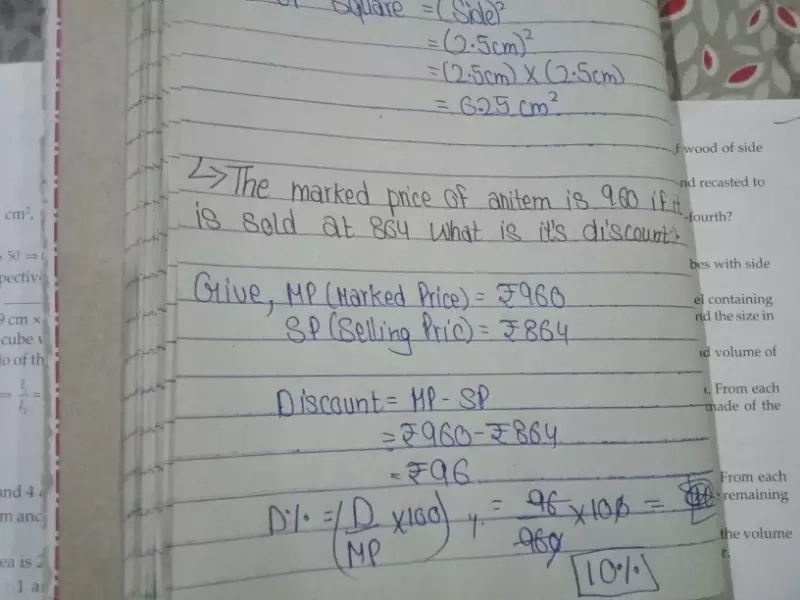 Square = (Side)²
= (2.5cm)²
= (2.5cm) X (2.5cm)
= 6.25 cm²
↳ The marked price of anitem is 960 if it
is sold at 864 what is it's discount?
Give, MP (Marked Price) = ₹960
SP (Selling Pric) = ₹864
Discount = MP - SP
= ₹960 - ₹864
= ₹96
D% = (D/MP X100) %. = 96/960 X 100 =
10%
cm²,
50 ⇒
9 cm ×
cube
io of th
and 4
m and
ea is 2
1 a
f wood of side
nd recasted to
-fourth?
bes with side
el containing
nd the size in
nd volume of
. From each
made of the
From each
remaining
the volume
r.